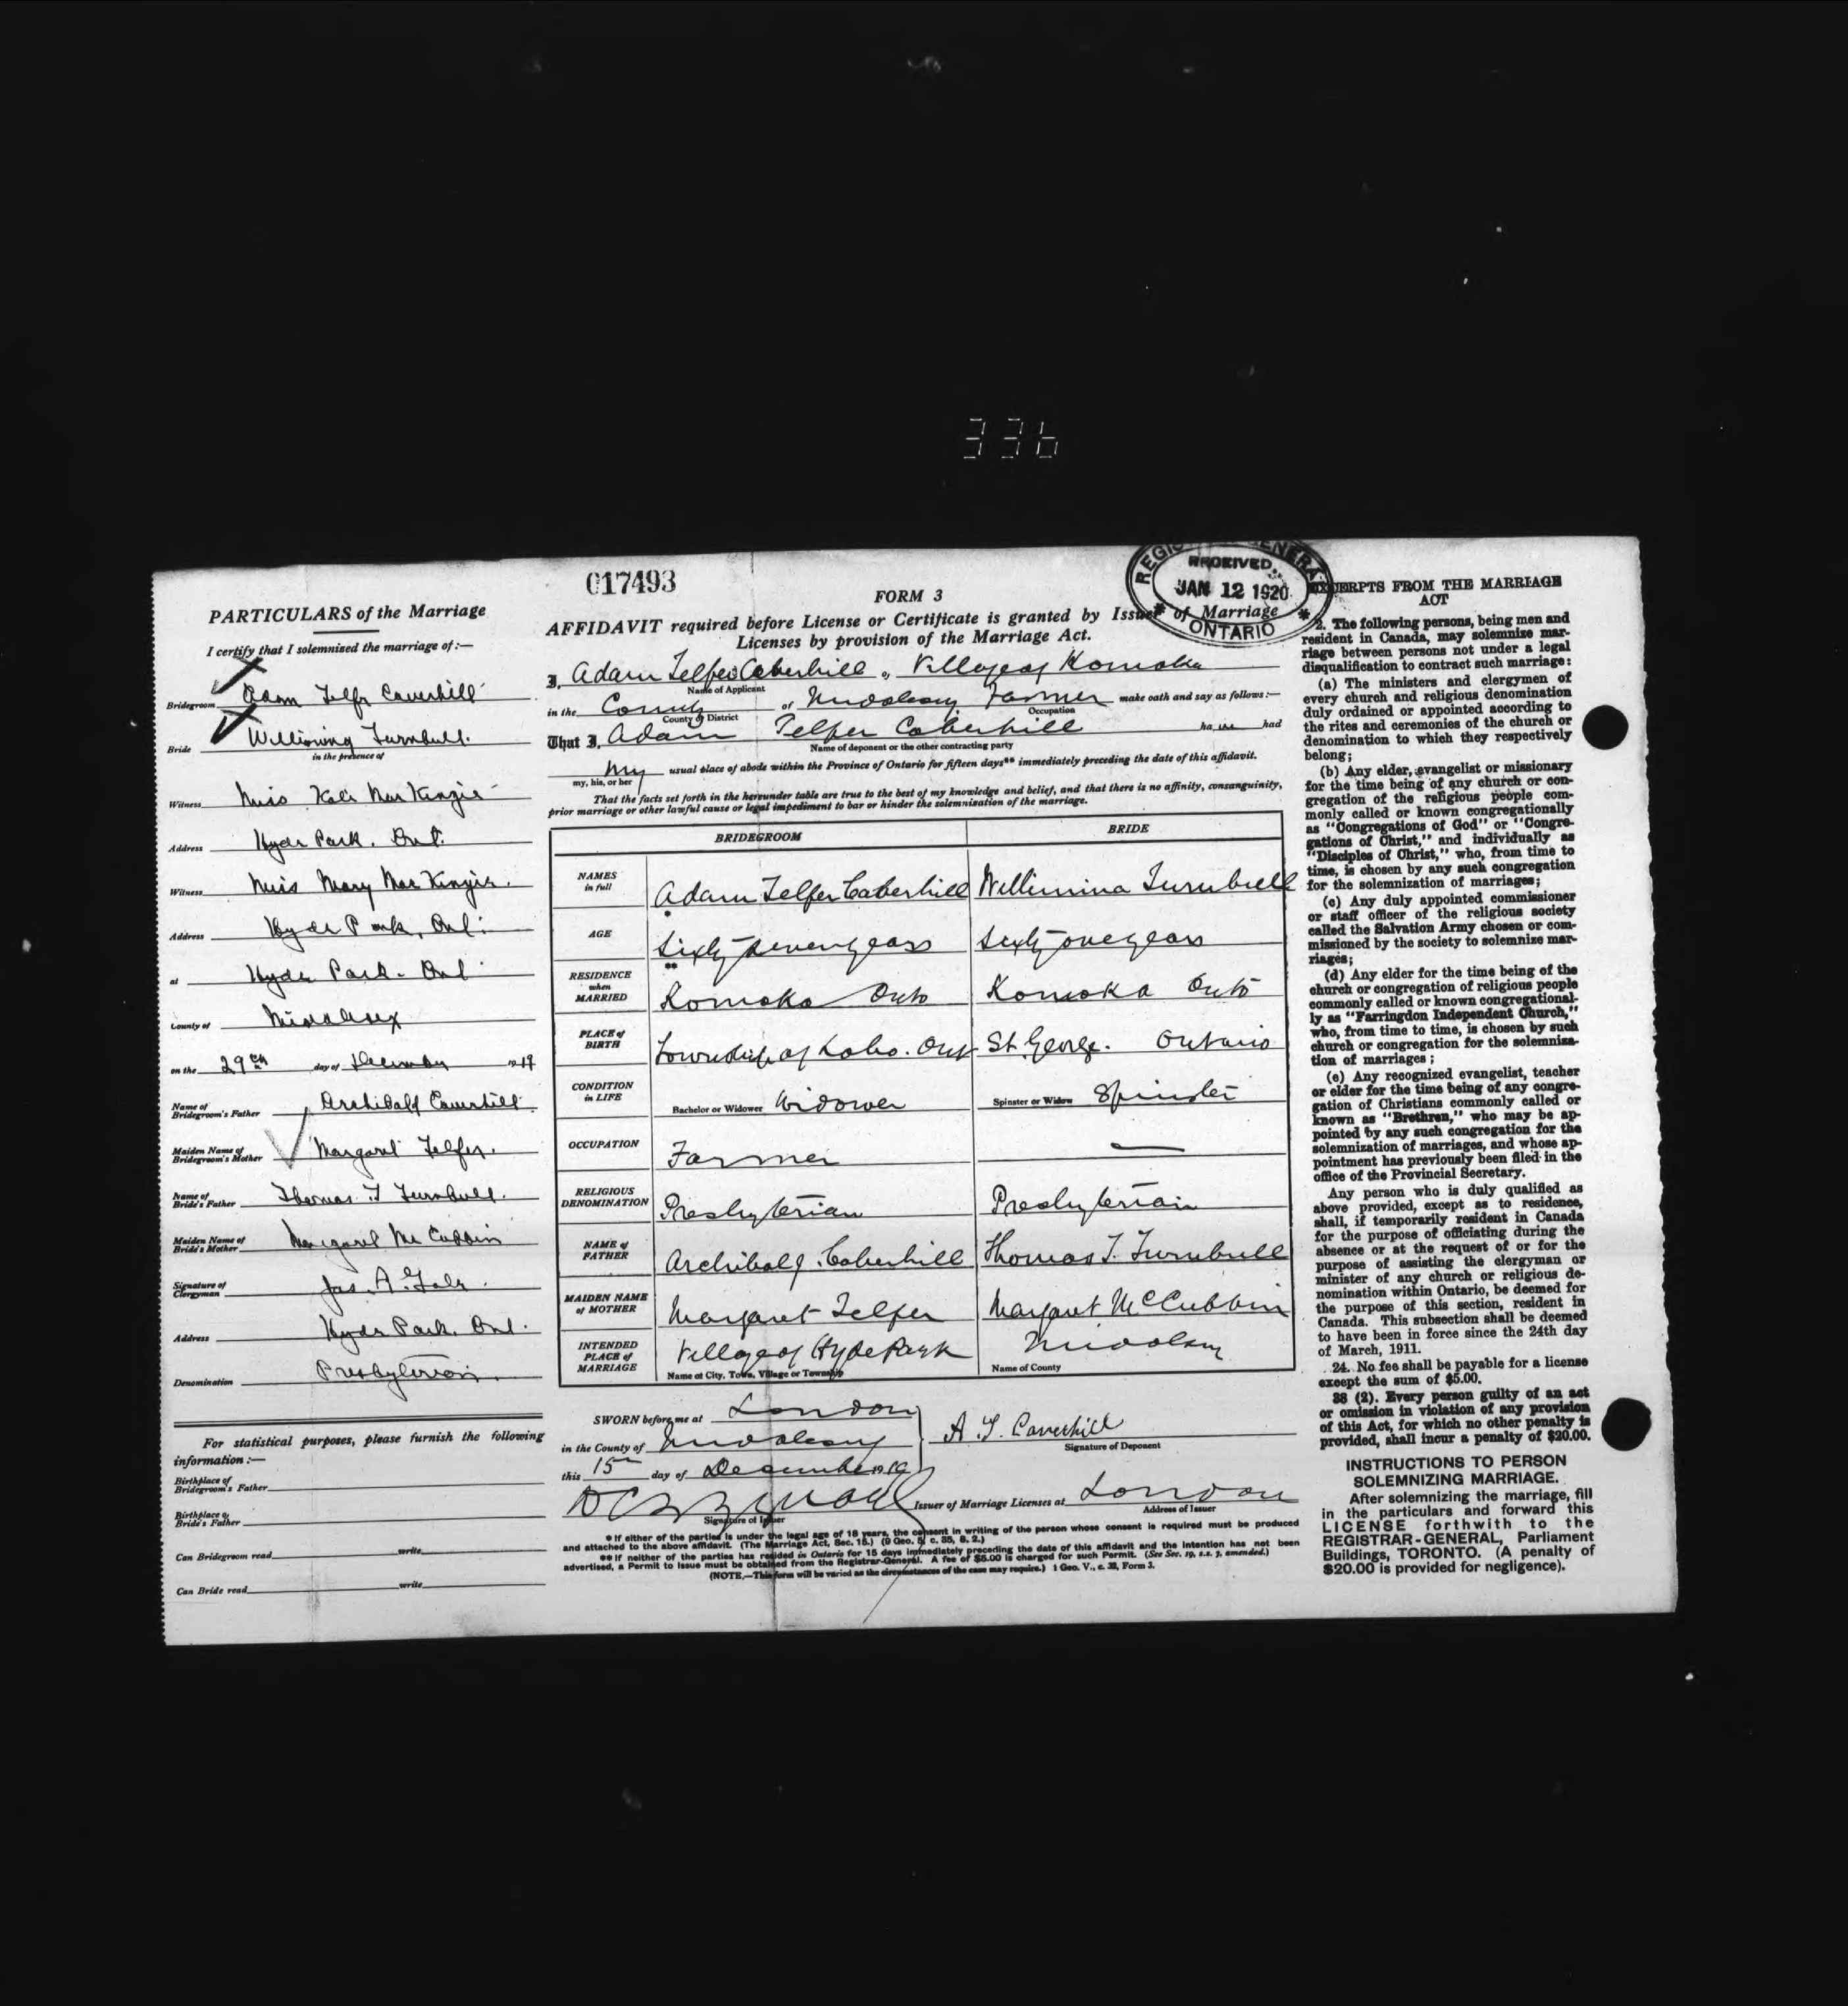 336
017493
REGISTRAR GENERAL
RECEIVED
JAN 12 1920
ONTARIO
PARTICULARS of the Marriage
I certify that I solemnized the marriage of:—
Bridegroom Adam Telfr Caverhill
Bride Willimina Turnbull.
in the presence of
Witness Miss Kate MacKenzie
Address Hyde Park. Ont.
Witness Miss Mary MacKenzie.
Address Hyde Park, Ont.
at Hyde Park. Ont.
County of Middlesex
on the 29th day of December 1919
Name of Bridegroom's Father Archibald Caverhill.
Maiden Name of Bridegroom's Mother Margaret Telfer.
Name of Bride's Father Thomas T Turnbull.
Maiden Name of Bride's Mother Margaret McCubbin
Signature of Clergyman Jas. A.
Address Hyde Park. Ont.
Denomination Presbyterian.
For statistical purposes, please furnish the following
information:—
Birthplace of Bridegroom's Father
Birthplace of Bride's Father
Can Bridegroom read write
Can Bride read write
FORM 3
AFFIDAVIT required before License or Certificate is granted by Issuer of Marriage
Licenses by provision of the Marriage Act.
I, Adam Telfer Caberhill, Village of Komoka
Name of Applicant
in the County of Middlesex Farmer make oath and say as follows:—
County or District Occupation
That I, Adam Telfer Caberhill have had
Name of deponent or the other contracting party
my usual place of abode within the Province of Ontario for fifteen days** immediately preceding the date of this affidavit.
my, his, or her
That the facts set forth in the hereunder table are true to the best of my knowledge and belief, and that there is no affinity, consanguinity,
prior marriage or other lawful cause or legal impediment to bar or hinder the solemnization of the marriage.
BRIDEGROOM BRIDE
NAMES in full Adam Telfer Caberhill Willimina Turnbull
AGE * Sixty seven years Sixty one years
RESIDENCE when MARRIED ** Komoka Onto Komoka Onto
PLACE of BIRTH Township of Lobo. Ont St. George. Ontario
CONDITION in LIFE Bachelor or Widower Widower Spinster or Widow Spinster
OCCUPATION Farmer —
RELIGIOUS DENOMINATION Presbyterian Presbyterian
NAME of FATHER Archibald Caberhill Thomas T. Turnbull
MAIDEN NAME of MOTHER Margaret Telfer Margaret McCubbin
INTENDED PLACE of MARRIAGE Village of Hyde Park Middlesex
Name of City, Town, Village or Township Name of County
SWORN before me at London
in the County of Middlesex A. T. Caverhill
Signature of Deponent
this 15th day of December 1919
Issuer of Marriage Licenses at London
Signature of Issuer Address of Issuer
* If either of the parties is under the legal age of 18 years, the consent in writing of the person whose consent is required must be produced
and attached to the above affidavit. (The Marriage Act, Sec. 15.) (9 Geo. 5, c. 35, s. 2.)
** If neither of the parties has resided in Ontario for 15 days immediately preceding the date of this affidavit and the intention has not been
advertised, a Permit to issue must be obtained from the Registrar-General. A fee of $5.00 is charged for such Permit. (See Sec. 19, s.s. 7, amended.)
(NOTE,—This form will be varied as the circumstances of the case may require.) 1 Geo. V., c. 32, Form 3.
EXCERPTS FROM THE MARRIAGE
ACT
2. The following persons, being men and
resident in Canada, may solemnize mar-
riage between persons not under a legal
disqualification to contract such marriage:
(a) The ministers and clergymen of
every church and religious denomination
duly ordained or appointed according to
the rites and ceremonies of the church or
denomination to which they respectively
belong;
(b) Any elder, evangelist or missionary
for the time being of any church or con-
gregation of the religious people com-
monly called or known congregationally
as "Congregations of God" or "Congre-
gations of Christ," and individually as
"Disciples of Christ," who, from time to
time, is chosen by any such congregation
for the solemnization of marriages;
(c) Any duly appointed commissioner
or staff officer of the religious society
called the Salvation Army chosen or com-
missioned by the society to solemnize mar-
riages;
(d) Any elder for the time being of the
church or congregation of religious people
commonly called or known congregational-
ly as "Farringdon Independent Church,"
who, from time to time, is chosen by such
church or congregation for the solemniza-
tion of marriages;
(e) Any recognized evangelist, teacher
or elder for the time being of any congre-
gation of Christians commonly called or
known as "Brethren," who may be ap-
pointed by any such congregation for the
solemnization of marriages, and whose ap-
pointment has previously been filed in the
office of the Provincial Secretary.
Any person who is duly qualified as
above provided, except as to residence,
shall, if temporarily resident in Canada
for the purpose of officiating during the
absence or at the request of or for the
purpose of assisting the clergyman or
minister of any church or religious de-
nomination within Ontario, be deemed for
the purpose of this section, resident in
Canada. This subsection shall be deemed
to have been in force since the 24th day
of March, 1911.
24. No fee shall be payable for a license
except the sum of $5.00.
38 (2). Every person guilty of an act
or omission in violation of any provision
of this Act, for which no other penalty is
provided, shall incur a penalty of $20.00.
INSTRUCTIONS TO PERSON
SOLEMNIZING MARRIAGE.
After solemnizing the marriage, fill
in the particulars and forward this
LICENSE forthwith to the
REGISTRAR-GENERAL, Parliament
Buildings, TORONTO. (A penalty of
$20.00 is provided for negligence).